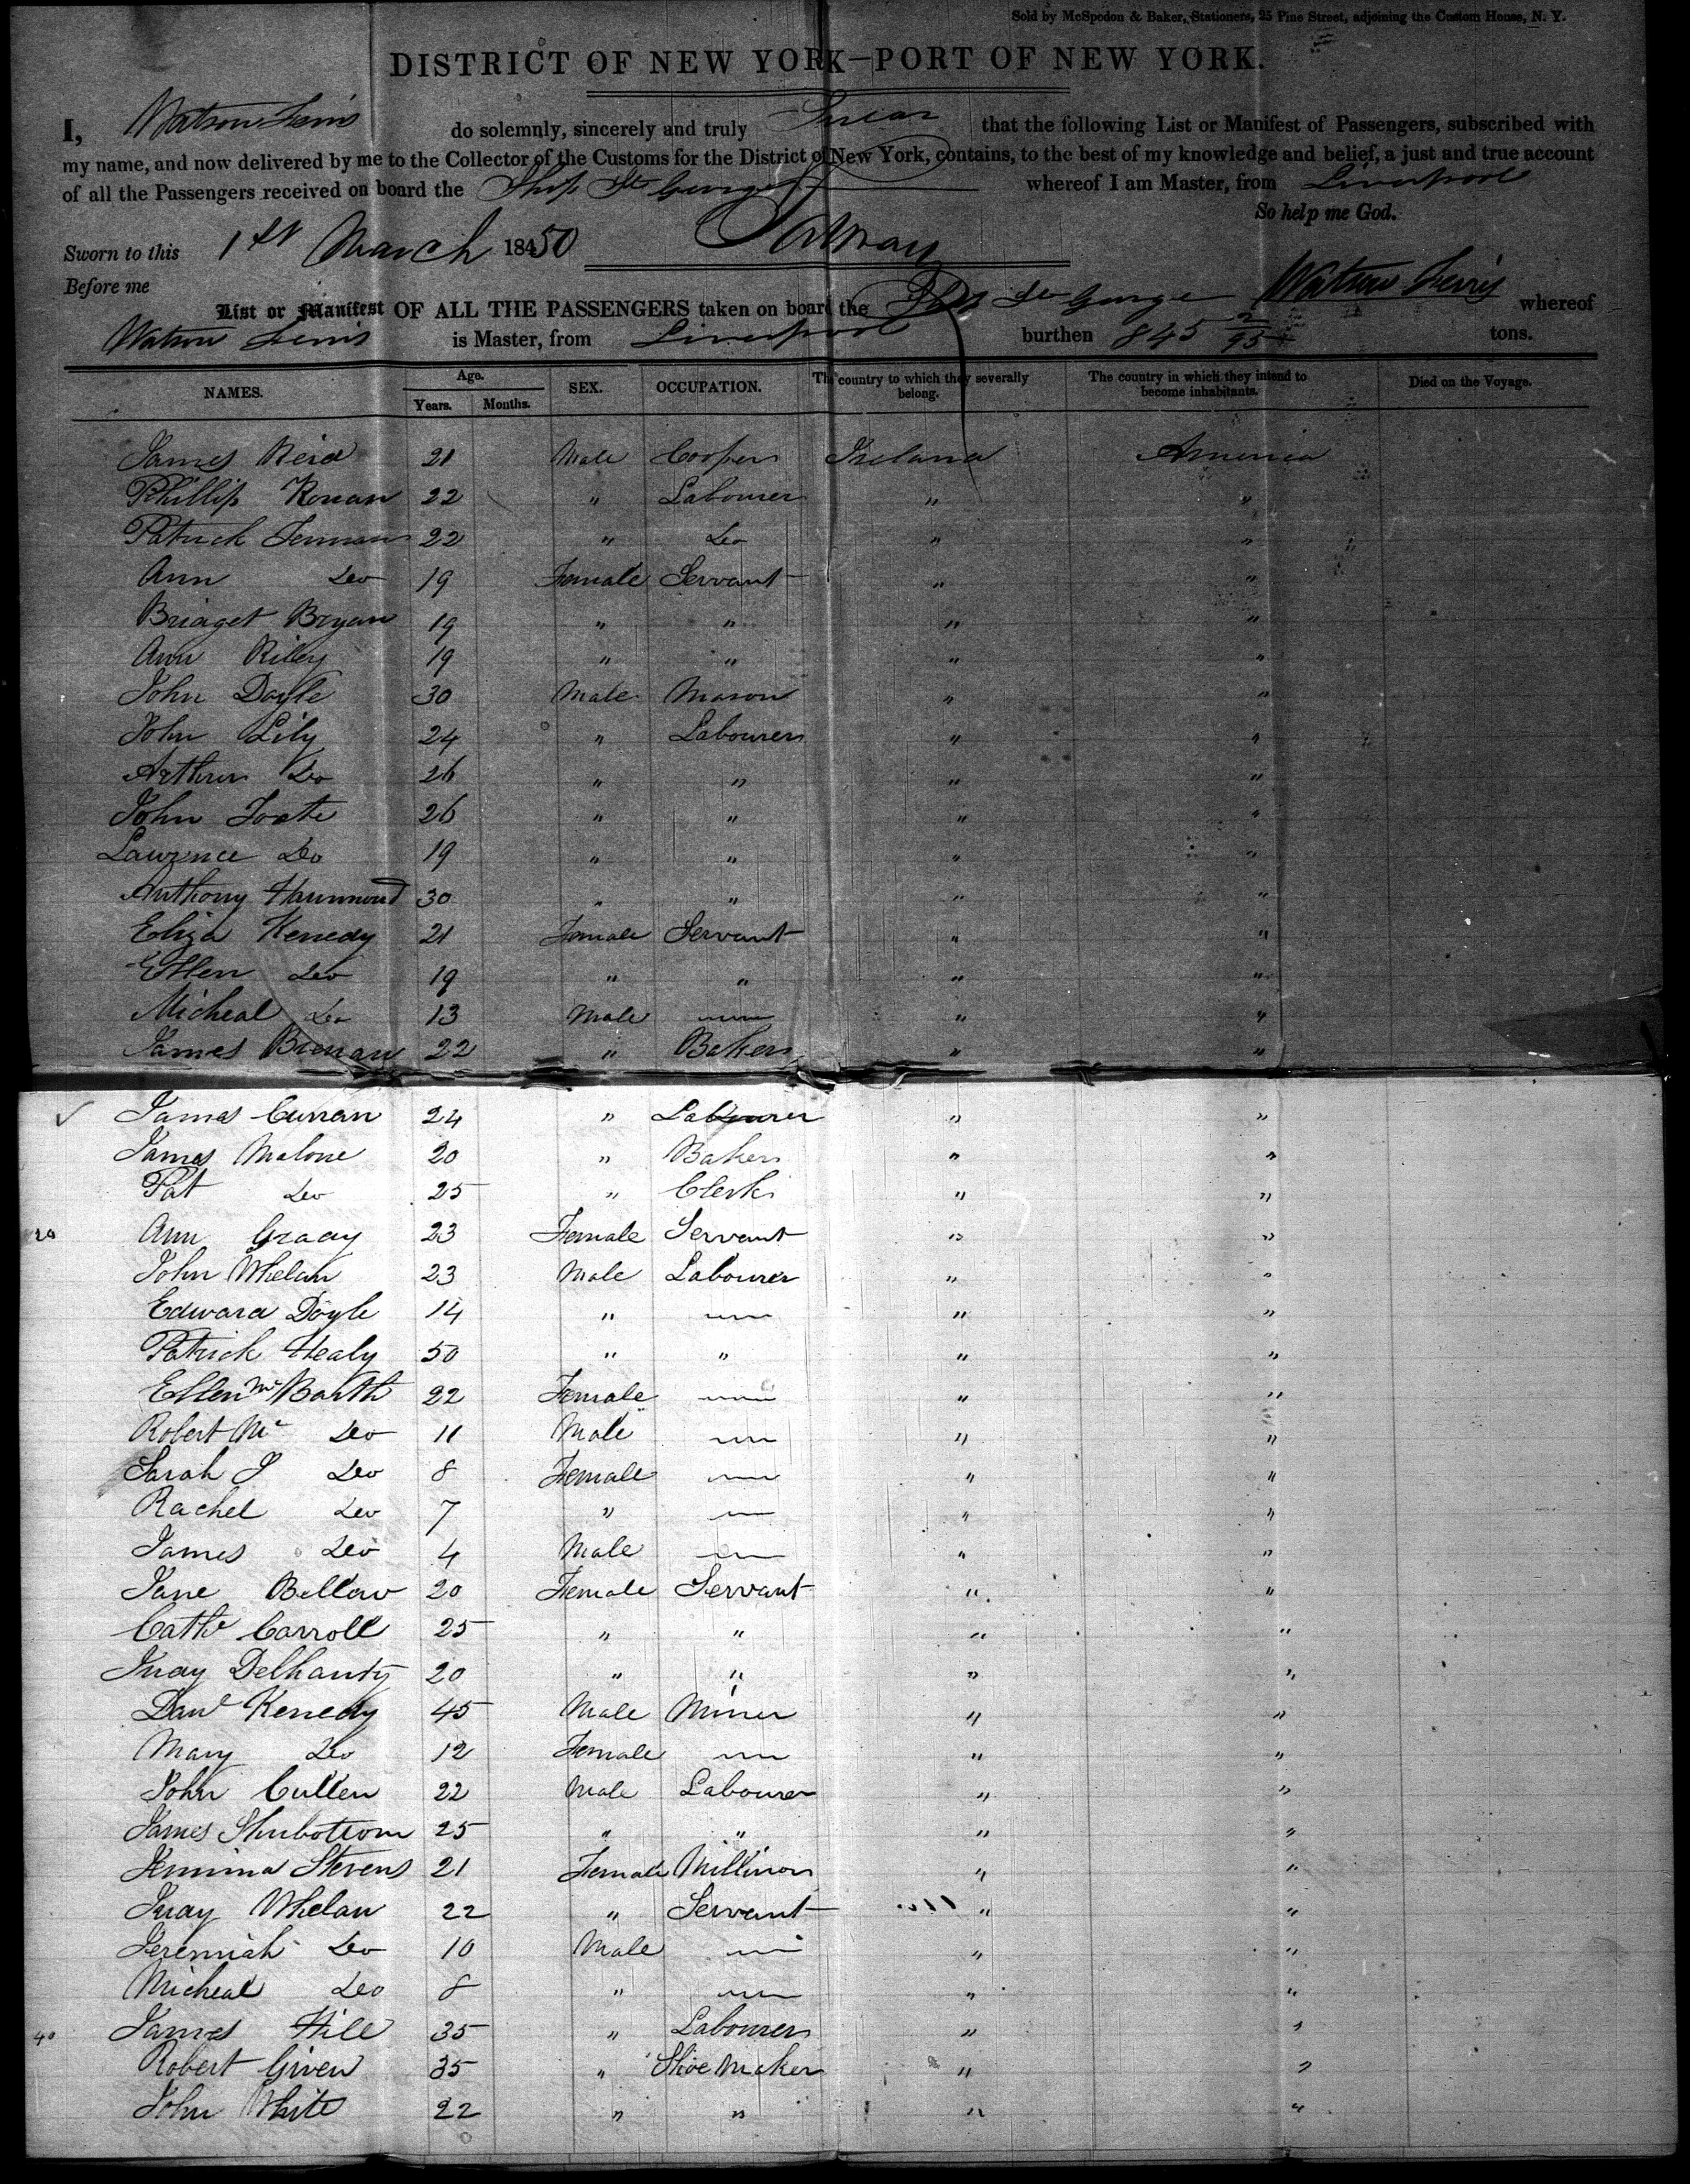 Sold by McSpedon & Baker, Stationers, 25 Pine Street, adjoining the Custom House, N. Y.
DISTRICT OF NEW YORK—PORT OF NEW YORK.
I, Watson Ferris do solemnly, sincerely and truly Swear that the following List or Manifest of Passengers, subscribed with
my name, and now delivered by me to the Collector of the Customs for the District of New York, contains, to the best of my knowledge and belief, a just and true account
of all the Passengers received on board the Ship St George whereof I am Master, from Liverpool
So help me God.
Sworn to this 1st March 18450
Before me Watson Ferris
List or Manifest OF ALL THE PASSENGERS taken on board the Ship St George whereof
Watson Ferris is Master, from Liverpool burthen 845 2/95 tons.
NAMES. Age. Years. Months. SEX. OCCUPATION. The country to which they severally belong. The country in which they intend to become inhabitants. Died on the Voyage.
James Reid 21 Male Cooper Ireland America
Phillip Ronan 22 " Labourer " "
Patrick 22 " Do " "
Ann Do 19 Female Servant " "
Bridget Bryan 19 " " " "
Ann Riley 19 " " " "
John Doyle 30 Male Mason " "
John Lily 24 " Labourer " "
Arthur Do 26 " " " "
John Foote 26 " " " "
Lawrence Do 19 " " " "
Anthony Hammond 30 " " " "
Eliza Kenedy 21 Female Servant " "
Ellen Do 19 " " " "
Micheal Do 13 Male — " "
James Brenan 22 " Baker " "
James Curran 24 " Labourer " "
James Malone 20 " Baker " "
Pat Do 25 " Clerk " "
20 Ann Grady 23 Female Servant " "
John Whelan 23 Male Labourer " "
Edward Doyle 14 " — " "
Patrick Healy 50 " " " "
Ellen Mc Barth 22 Female — " "
Robert Mc Do 11 Male — " "
Sarah J Do 8 Female — " "
Rachel Do 7 " — " "
James Do 4 Male — " "
Jane Bellow 20 Female Servant " "
Cathe Carroll 25 " " " "
Judy Delhanty 20 " " " "
Danl Kenedy 45 Male Miner " "
Mary Do 12 Female — " "
John Cullen 22 Male Labourer " "
James Shubottom 25 " " " "
Jemima Stevens 21 Female Millinor " "
Judy Whelan 22 " Servant " "
Jeremiah Do 10 Male — " "
Micheal Do 8 " — " "
40 James Hill 35 " Labourer " "
Robert Given 35 " Shoe Maker " "
John White 22 " " " "